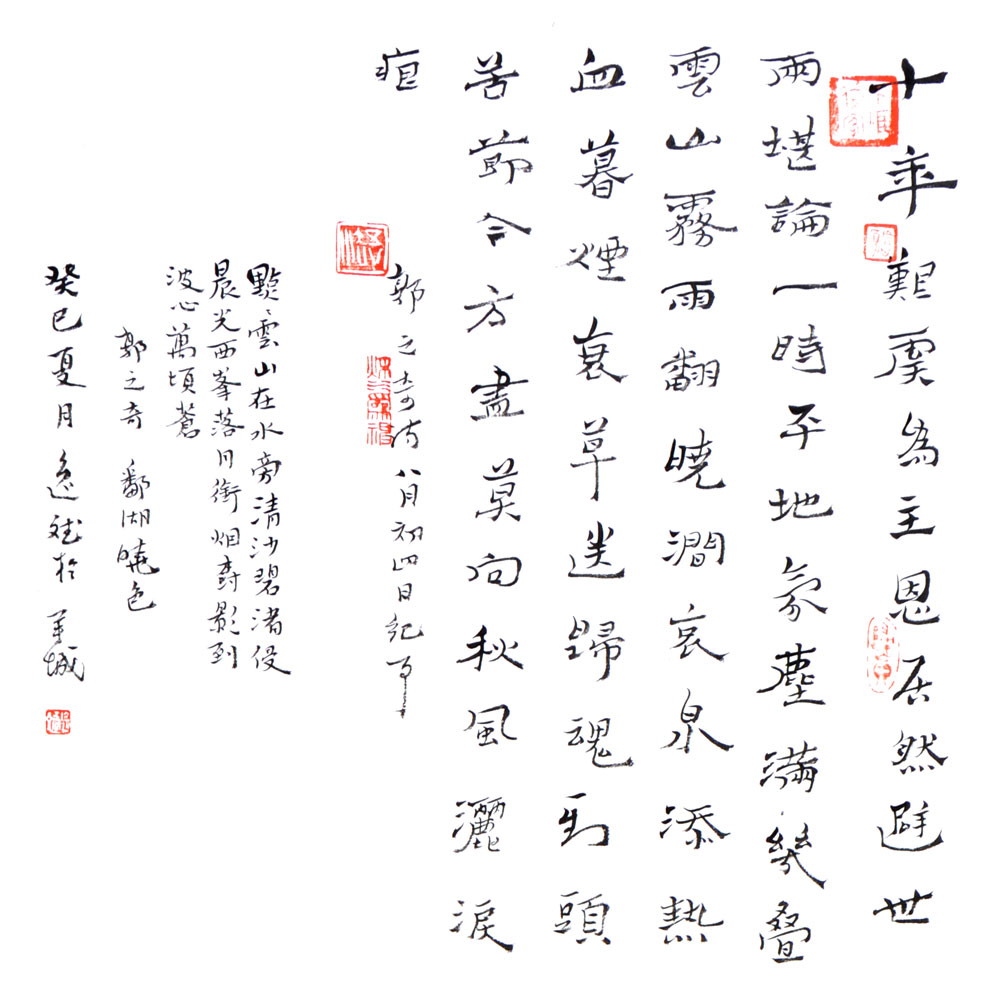 十年艱虞為主恩居然避世
兩堪論一時平地氛塵滿幾疊
雲山霧雨翻曉澗哀泉添熱
血暮煙衰草迷歸魂到頭
苦節今方盡莫向秋風灑淚
痕
郭之奇詩八月初四日紀事
點雲山在水旁清沙碧渚侵
晨光西峯落月銜烟樹影到
波心萬頃蒼
郭之奇 鄱湖曉色
癸巳夏月逸斌於羊城